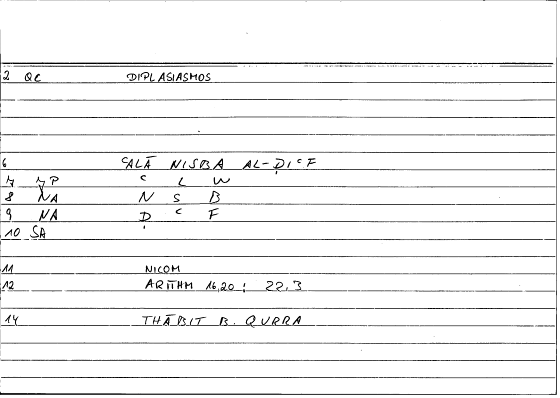 2 QC DIPLASIASMOS
6 ʿALĀ NISBA AL-ḌIʿF
7 7P ʿ L W
8 NA N S B
9 NA Ḍ ʿ F
10 SA
11 NICOM
12 ARITHM 16,20 ; 22,3
14 THĀBIT B. QURRA